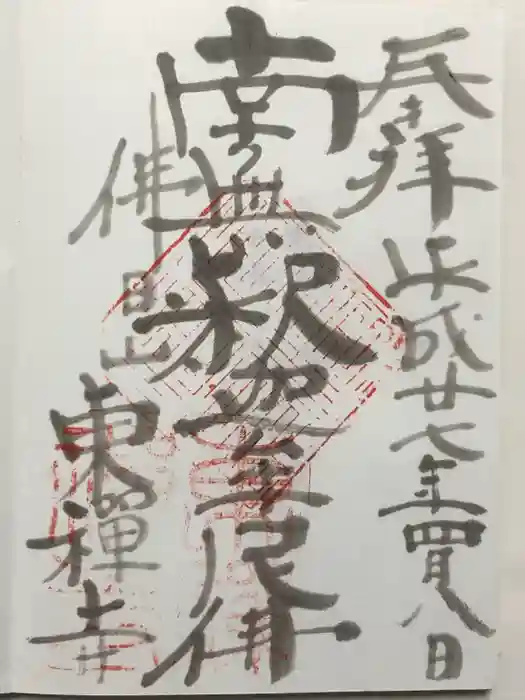 奉拝 平成廿七年四月八日
南無釈迦牟尼佛
佛日山
東禅寺